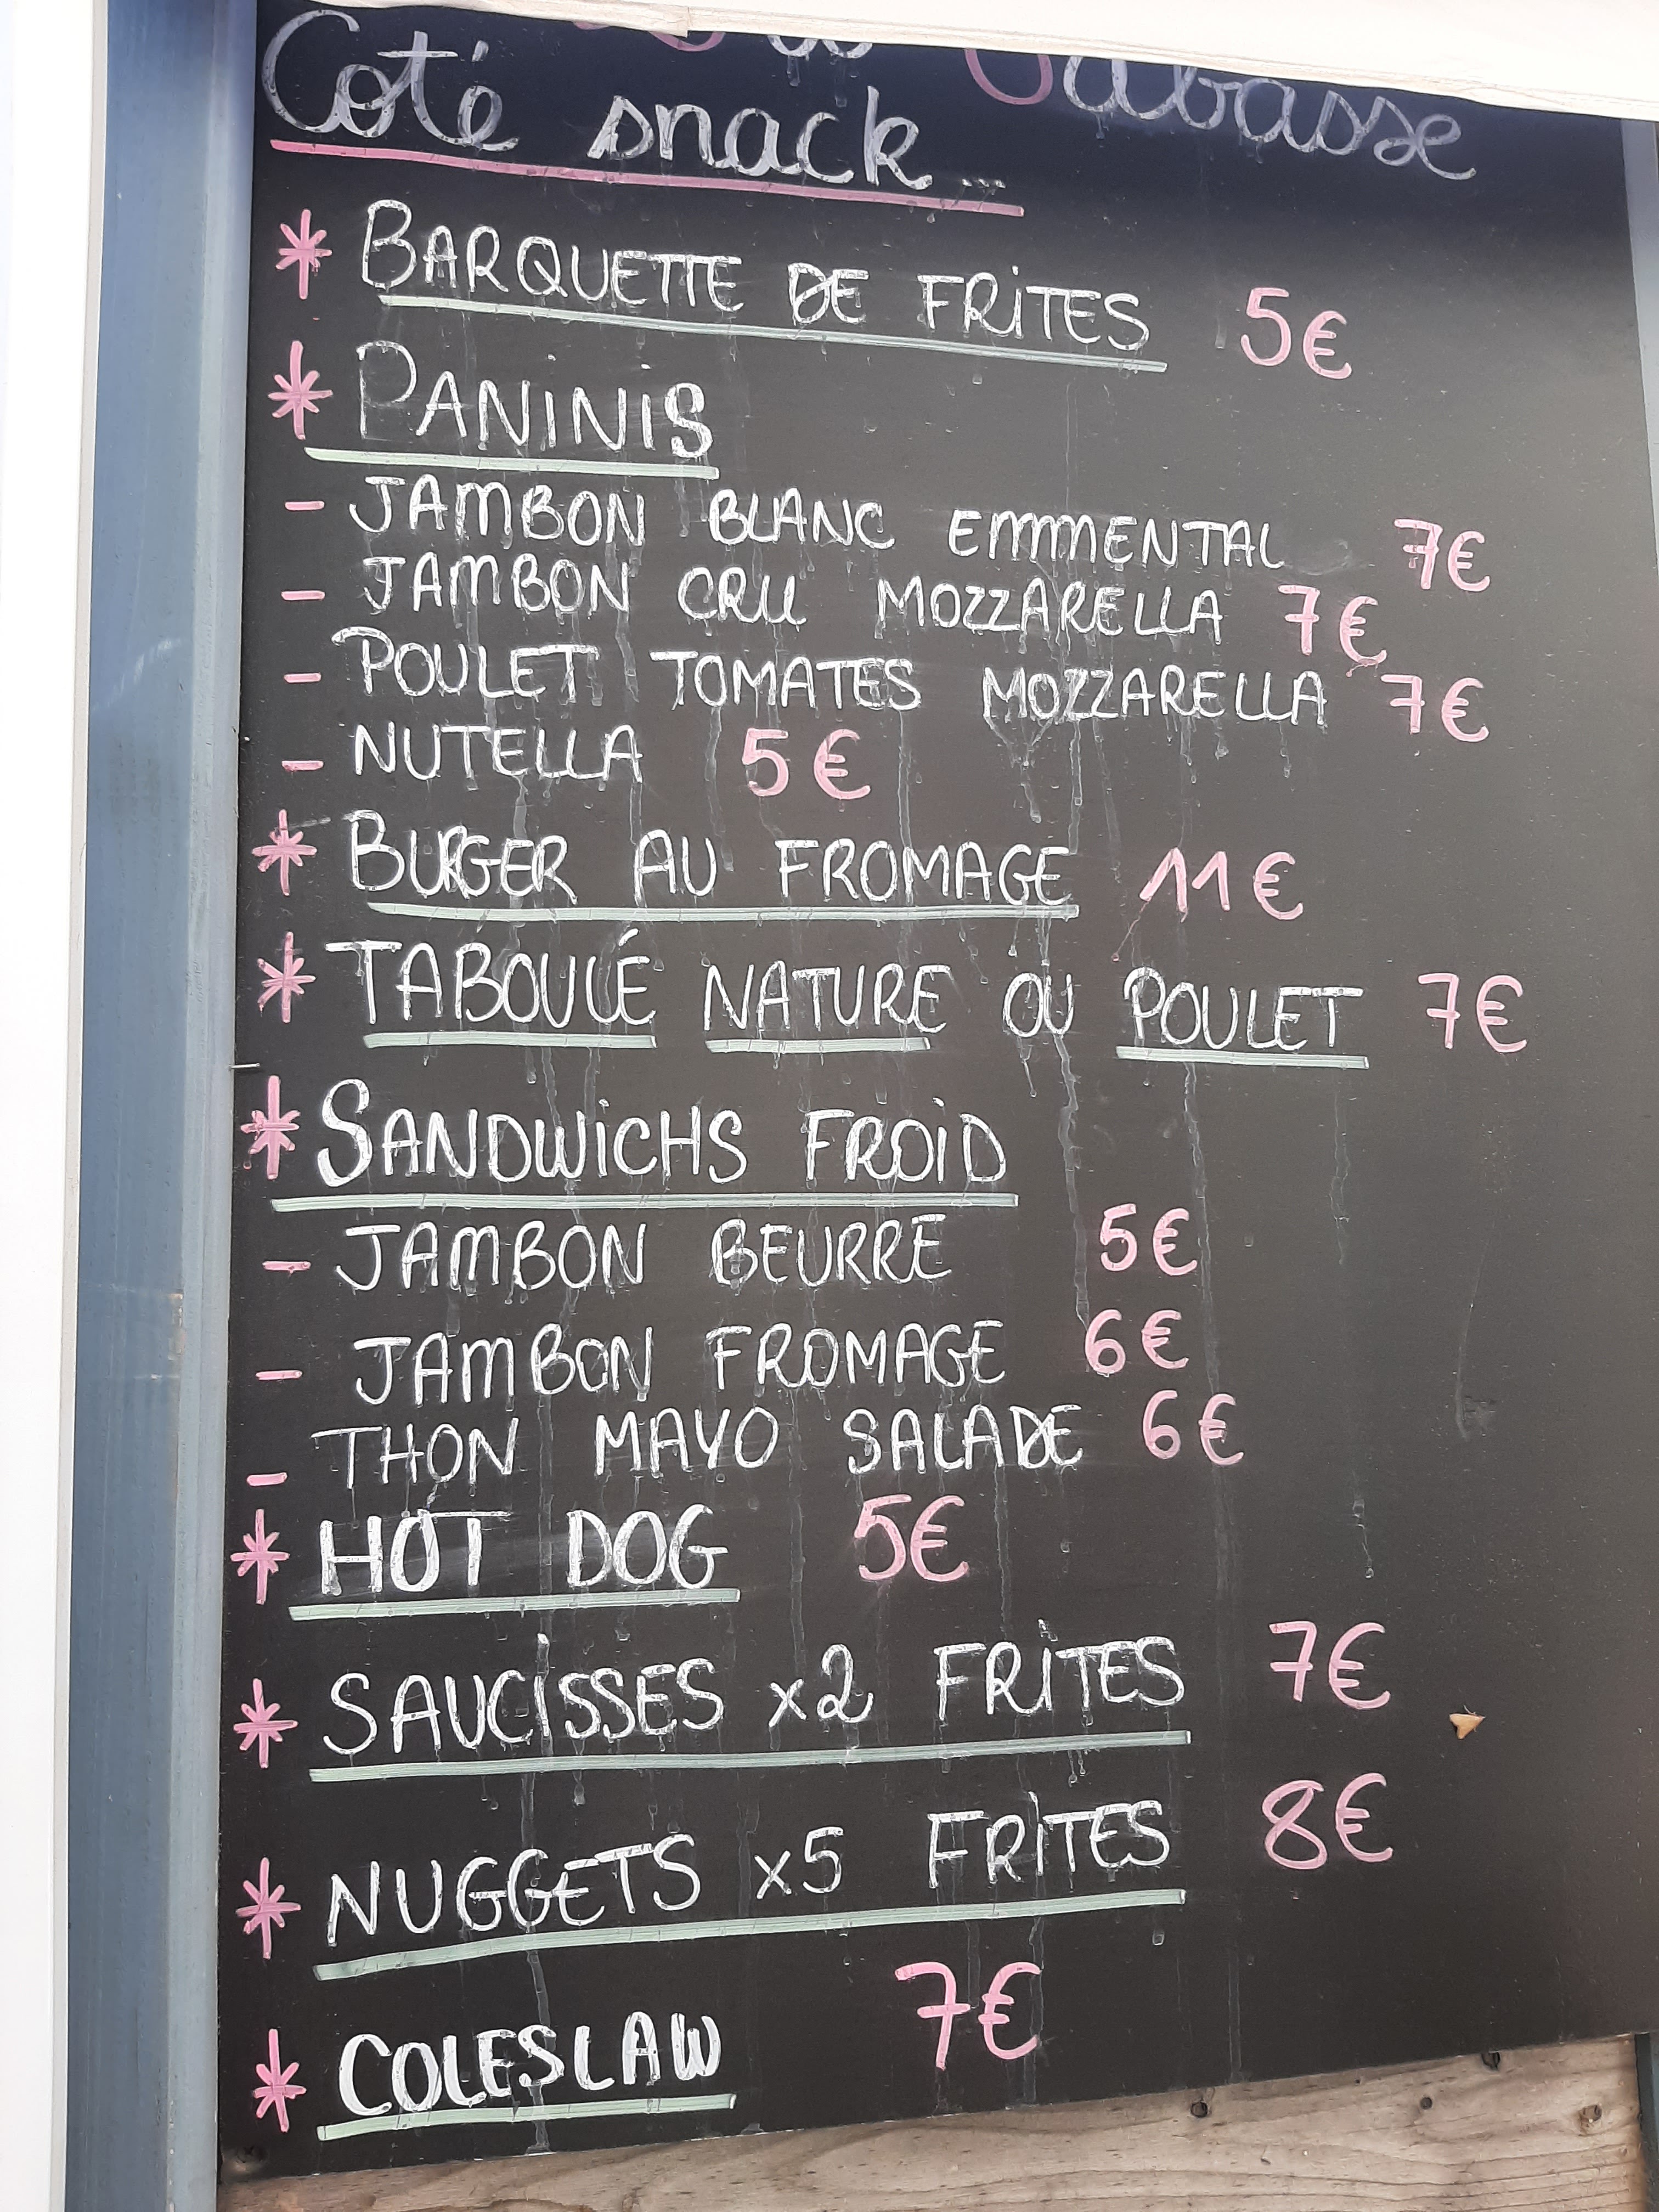 Coté snack...
* BARQUETTE DE FRITES 5€
* PANINIS
- JAMBON BLANC EMMENTAL 7€
- JAMBON CRU MOZZARELLA 7€
- POULET TOMATES MOZZARELLA 7€
- NUTELLA 5€
* BURGER AU FROMAGE 11€
* TABOULÉ NATURE OU POULET 7€
* SANDWICHS FROID
- JAMBON BEURRE 5€
- JAMBON FROMAGE 6€
- THON MAYO SALADE 6€
* HOT DOG 5€
* SAUCISSES x2 FRITES 7€
* NUGGETS x5 FRITES 8€
* COLESLAW 7€